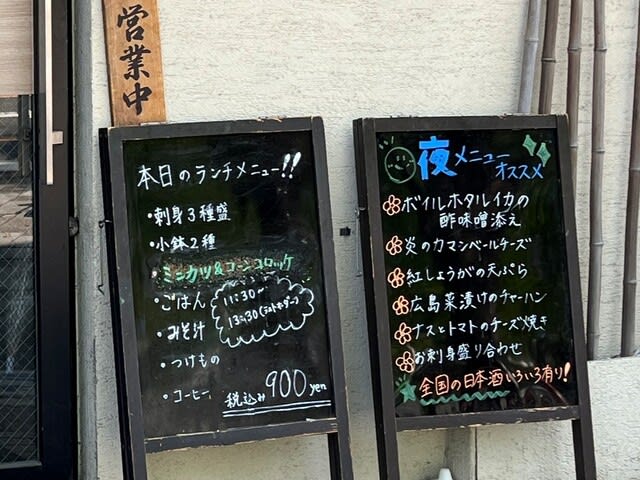 営業中
本日のランチメニュー!!
・刺身3種盛
・小鉢2種
・ミニカツ&コーンコロッケ
・ごはん
・みそ汁
・つけもの
・コーヒー
11:30〜
13:30(ラストオーダー)
税込み900yen
夜メニュー
オススメ
ボイルホタルイカの
酢味噌添え
炎のカマンベールチーズ
紅しょうがの天ぷら
広島菜漬けのチャーハン
ナスとトマトのチーズ焼き
お刺身盛り合わせ
全国の日本酒いろいろ有り!